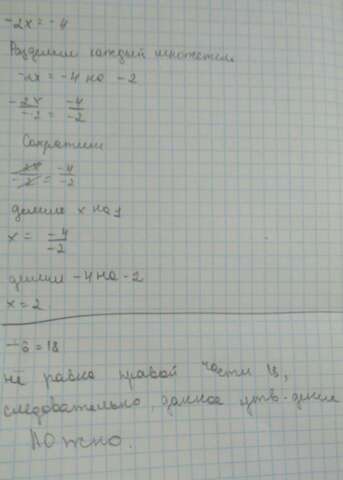 -2x = -4
Разделим каждый множетель
-2x = -4 на -2
-2x/-2 = -4/-2
Сократим
-2x/-2 = -4/-2
делим x на 1
x = -4/-2
делим -4 на -2
x = 2
-6 = 18
не равна правой части 18,
следовательно, данное утв-дение
ложно.